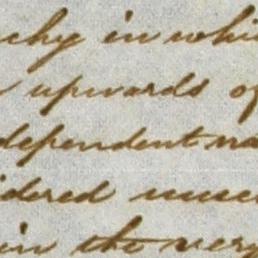 chy in whi
upwards of
dependent na
idered unne
in the very